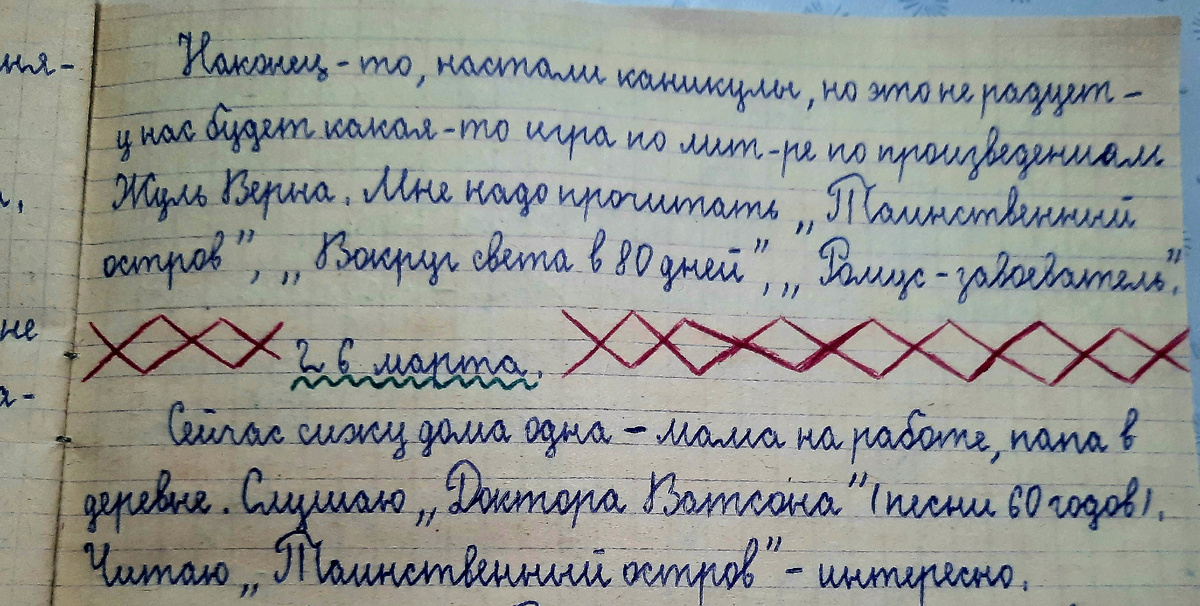 ня-
Наконец-то, настали каникулы, но это не радует -
у нас будет какая-то игра по лит-ре по произведениям
Жуль Верна. Мне надо прочитать „Таинственный
остров”, „Вокруг света в 80 дней”, „Ромус-завоеватель”.
не
26 марта.
я-
Сейчас сижу дома одна - мама на работе, папа в
деревне. Слушаю „Доктора Ватсона” (песни 60 годов).
Читаю „Таинственный остров” - интересно.